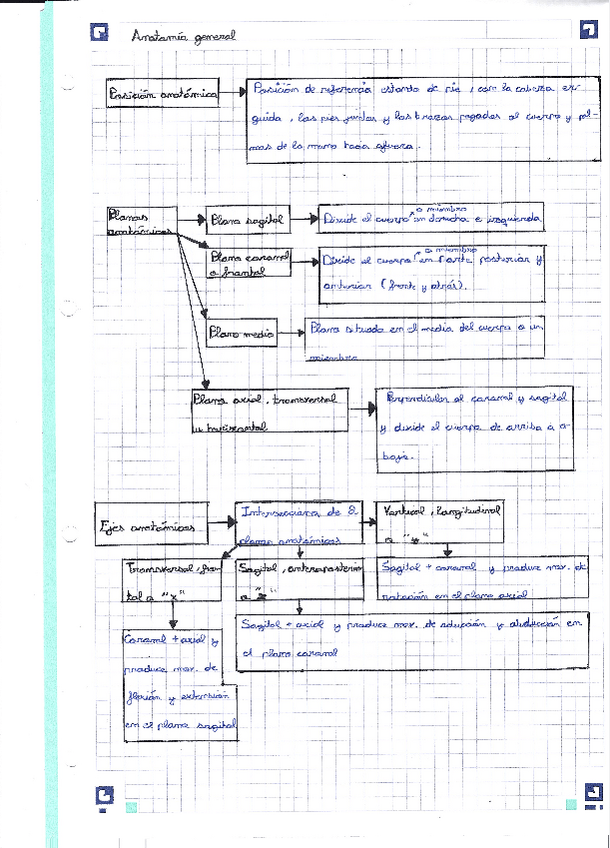 Anatomía general
Posición anatómica
Posición de referencia estando de pie, con la cabeza er-
guida, los pies juntos y los brazos pegados al cuerpo y pal-
mas de la mano hacia afuera.
Planos
anatómicos
Plano sagital
o miembro
Divide el cuerpo en derecha e izquierda
Plano coronal
o frontal
o miembro
Divide el cuerpo en parte posterior y
anterior (frente y atrás).
Plano medio
Plano situado en el medio del cuerpo o un
miembro
Plano axial, transversal
u horizontal
Perpendicular al coronal y sagital
y divide el cuerpo de arriba a a-
bajo.
Ejes anatómicos
Intersecciones de 2
planos anatómicos
Vertical, longitudinal
o "y"
Transversal, fron
tal o "x"
Sagital, anteroposterior
o "z"
Sagital + coronal y produce mov. de
rotación en el plano axial
Sagital + axial y produce mov. de aducción y abducción en
el plano coronal
Coronal + axial y
produce mov. de
flexión y extensión
en el plano sagital